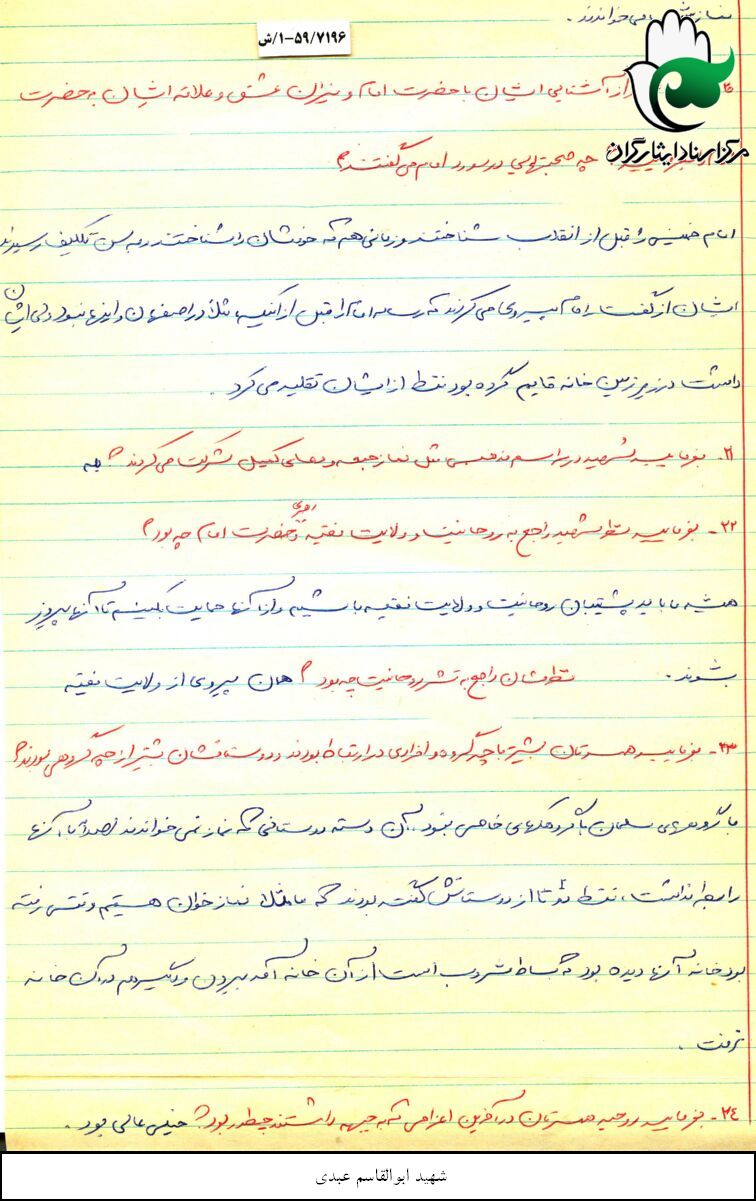 نمازش می‌خواندند.
۱-۵۹/۷۱۹۶/ش
مرکز اسناد ایثارگران
از آشنایی ایشان با حضرت امام و میزان عشق و علاقه ایشان به حضرت
چه صحبتهایی در مورد امام می‌گفتند؟
امام خمینی را قبل از انقلاب شناختند و زمانی هم که خودشان را شناختند و به سن تکلیف رسیدند
ایشان از گفت امام پیروی می‌کردند که رساله امام را قبل از اینکه مثلاً در اصفهان و اینها نبود ولی ایشان
داشت در زیرزمین خانه قایم کرده بود فقط از ایشان تقلید می‌کرد.
۲۱- بفرمایید شهید در مراسم مذهبی مثل نماز جمعه و دعای کمیل شرکت می‌کردند؟ بله
۲۲- بفرمایید نظر شهید راجع به روحانیت و ولایت فقیه و رهبری حضرت امام چه بود؟
همیشه ما باید پشتیبان روحانیت و ولایت فقیه باشیم و از آنها حمایت بکنیم تا آنها پیروز
بشوند. نظرشان راجع به قشر روحانیت چه بود؟ همان پیروی از ولایت فقیه
۲۳- بفرمایید همسرتان بیشتر با چه گروه و افرادی در ارتباط بودند و دوستانشان بیشتر از چه گروهی بودند؟
با گروههای مسلمان با گروهکهای خاص نبود، آن دسته دوستانی که نماز نمی‌خواندند اصلاً با آنها
رابطه نداشت، فقط دو تا از دوستانش گفته بودند که ما مثلاً نماز خوان هستیم وقتی رفته
بود خانه آنها دیده بود که بساط مشروب است از آن خانه آمد بیرون و دیگر هم در آن خانه
نرفت.
۲۴- بفرمایید روحیه همسرتان در آخرین اعزامی که به جبهه داشتند چطور بود؟ خیلی عالی بود.
شهید ابوالقاسم عبدی